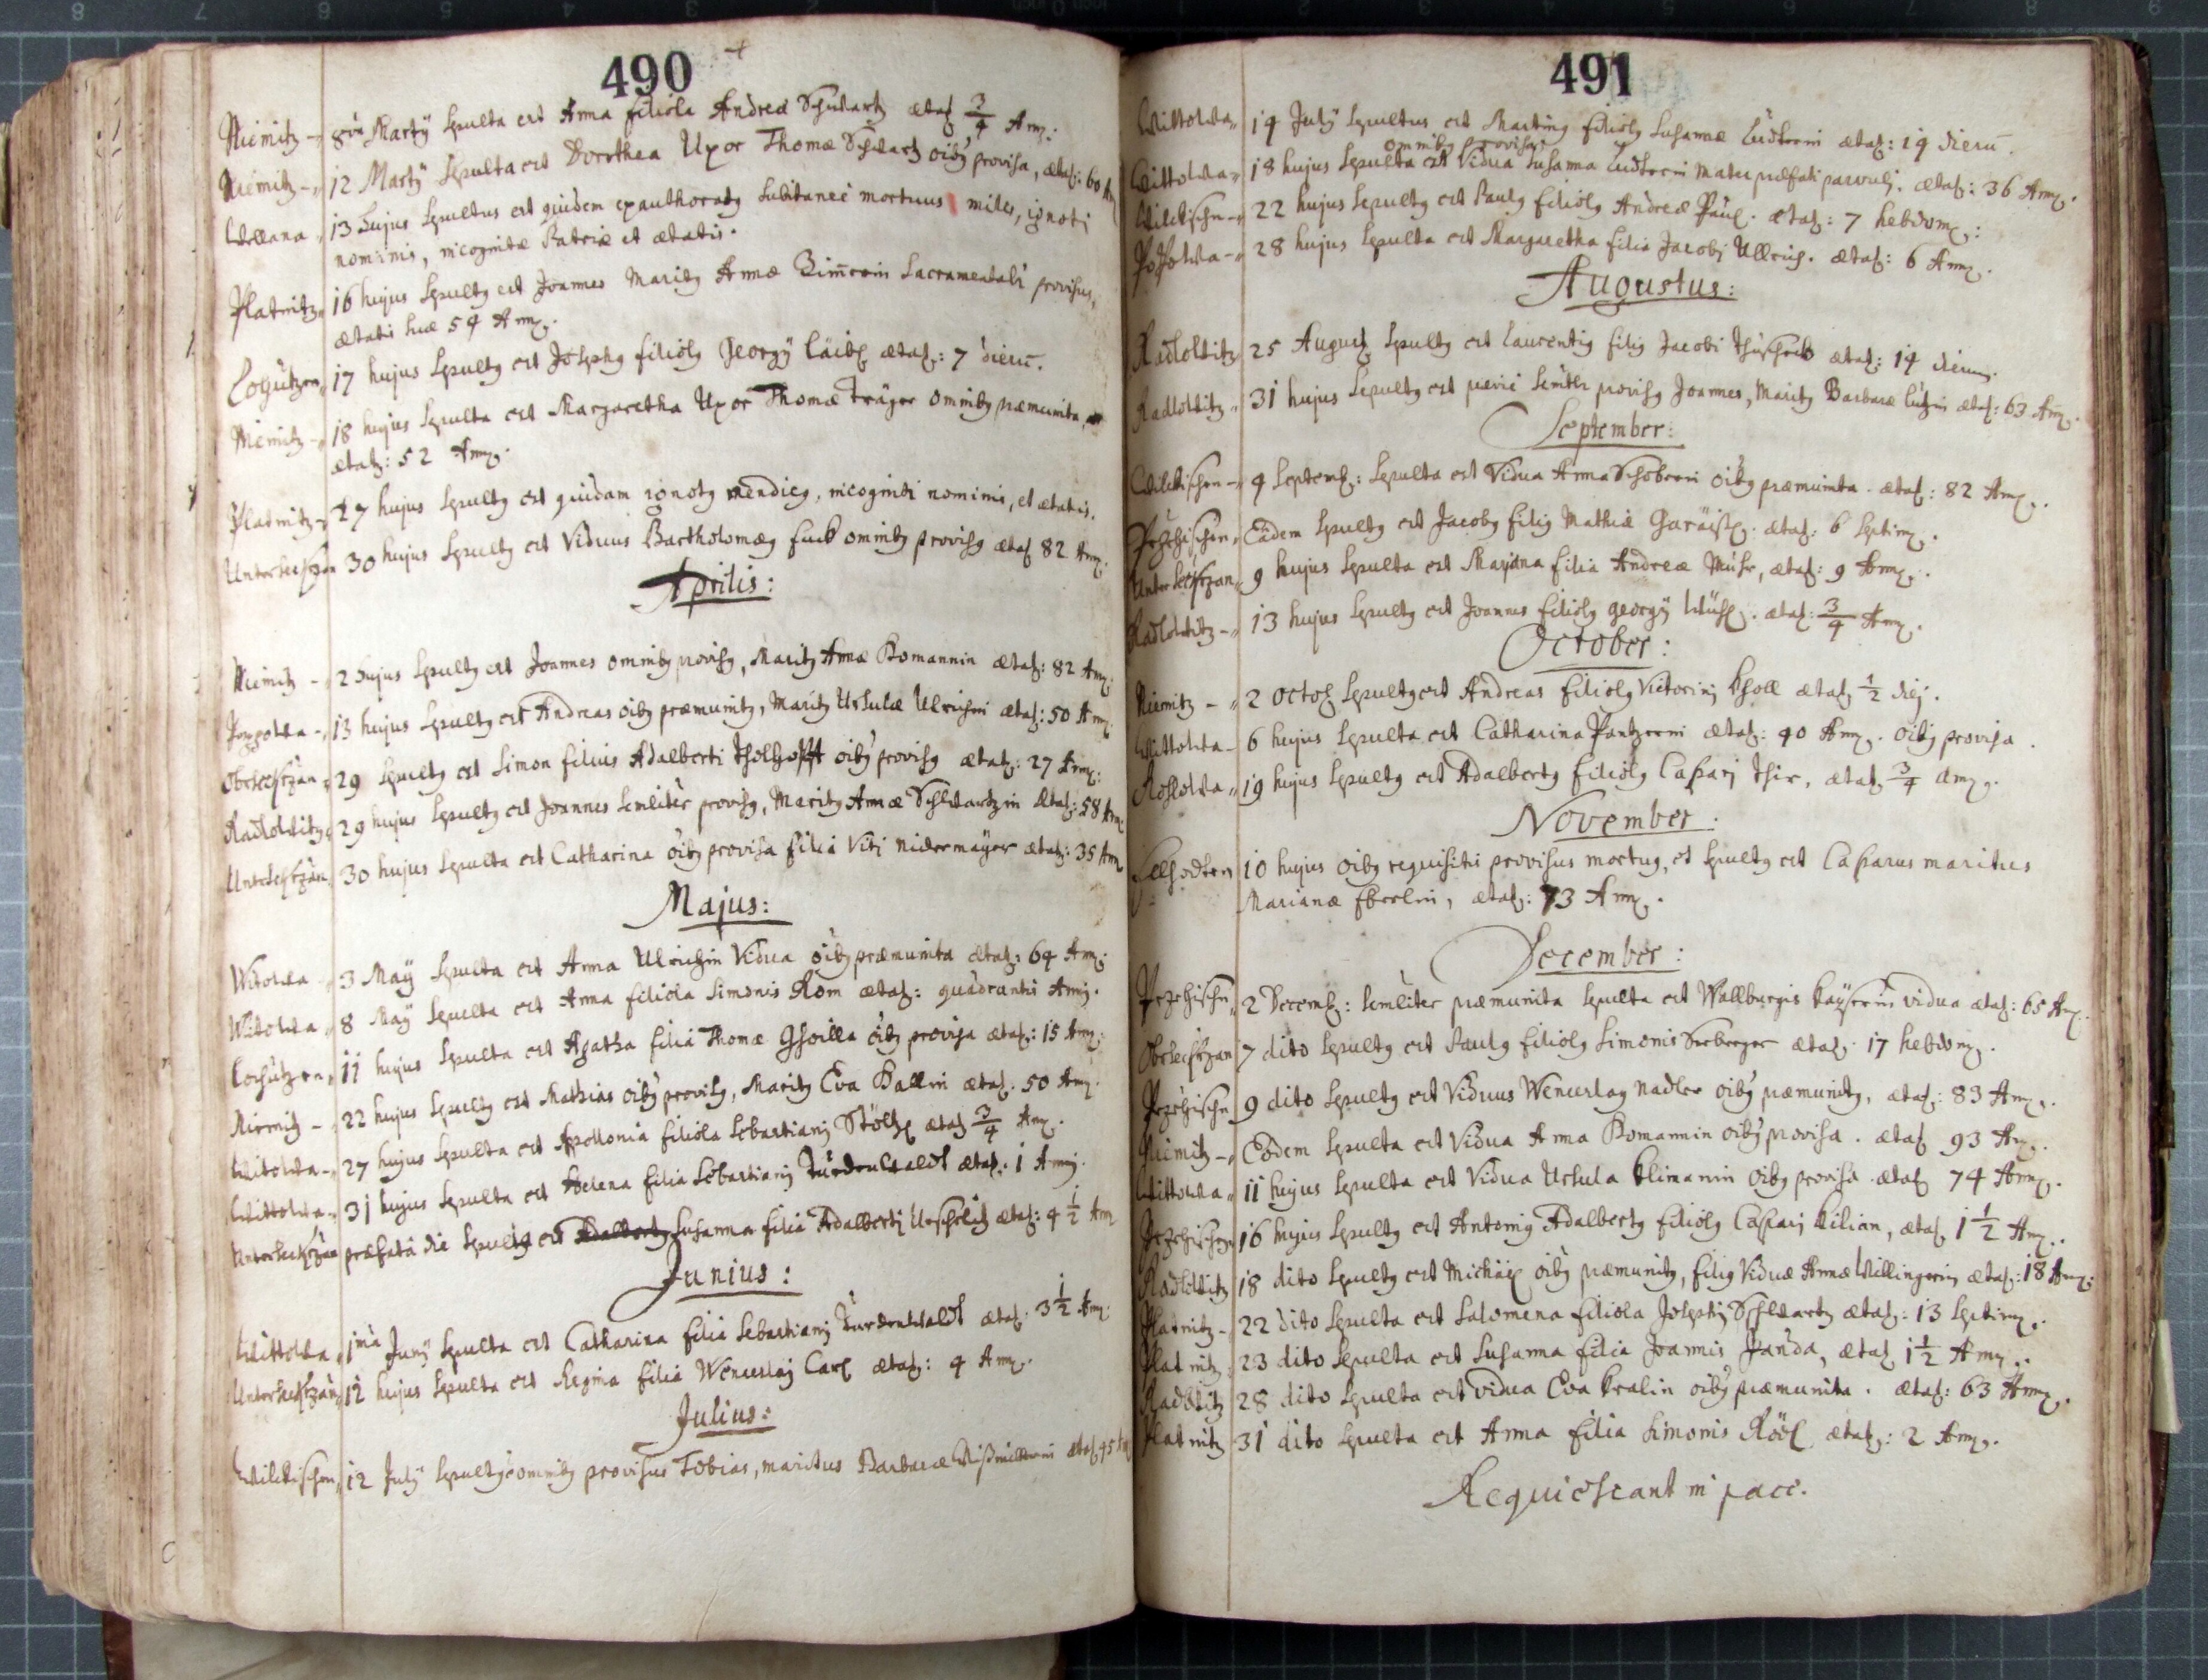 490
Niemitz - 8va Martÿ sepulta est Anna filiola Andreæ Schwartz ætat: 3/4 Ann:
Niemitz - 12 Martÿ sepulta est Dorothea Uxor Thomæ Schwartz oibg provisa, ætat: 60 An
13 hujus sepultus est quidem exauthoratg subitanei mortuus miles, ignoti
nominis, incognitæ Patriæ et ætatis.
Platnitz 16 hujus sepultg est Joannes Maritg Annæ Zim̄erin Sacramentali provisus,
ætatis suæ 54 Ann.
17 hujus sepultg est Josephg filiolg Georgÿ ætat: 7 dieru̅.
Niemitz - 18 hujus sepulta est Margaretha Uxor Thomæ Träger omnibg præmunita,
ætat: 52 Ann.
Platnitz - 27 hujus sepultg est quidam ignotg mendicg, incogniti nominis, et ætatis.
Untersekrzan 30 hujus sepultg est Viduus Bartholomæg omnibg provisg ætat 82 Ann.
Aprilis:
Niemitz - 2 hujus sepultg est Joannes omnibg provisg, Maritg Annæ Romannin ætat: 82 Ann.
13 hujus sepultg est Andreas oibg præmunitg, Maritg Ursulæ Ulrichin ætat: 50 Ann.
Obersekrzan 29 sepultg est Simon filius Adalberti oibg provisg ætat: 27 Ann:
Radlowitz 29 hujus sepultg est Joannes semliter provisg, Maritg Annæ Schwartzin ætat: 58 An
Untersekrzan 30 hujus sepulta est Catharina oibg provisa filia Viti Nidermaÿer ætat: 35 An
Majus:
Witowa - 3 Maÿ sepulta est Anna Ulrichin Vidua oibg præmunita ætat: 64 Ann:
Witowa 8 Maÿ sepulta est Anna filiola Simonis Rom ætat: quadrantis Anni.
11 hujus sepulta est Agatha filia Thomæ oibg provisa ætat: 15 Ann:
Niemitz - 22 hujus sepultg est Mathias oibg provisg, Maritg Eva Ballin ætat: 50 Ann.
Witowa - 27 hujus sepulta est Apollonia filiola Sebastiani ætat 3/4 Ann.
Wittowa - 31 hujus sepulta est Helena filia Sebastiani ætat: 1 Anni.
Untersekrzan præfata die sepultg est Adalbertg Susanna filia Adalberti ætat: 4 1/2 Ann
Junius:
Wittowa 1ma Junÿ sepulta est Catharina filia Sebastiani ætat: 3 1/2 Ann:
Untersekrzan 12 hujus sepulta est Regina filia Wenceslai Carl ætat: 4 Ann.
Julius:
Wilkischen 12 Julÿ sepultg omnibg provisus Tobias, maritus Barbaræ ætat 45 An
491
Wittowa 14 Julÿ sepultus est Marting filiolg Susannæ ætat: 14 dieru̅.
omnibg provisa
Wittowa 18 hujus sepulta est Vidua Susanna Mater præfati parvuli. ætat: 36 Ann.
Wilkischn - 22 hujus sepultg est Paulg filiolg Andreæ ætat: 7 hebdom:
28 hujus sepulta est Margaretha filia Jacobi Ullrich. ætat: 6 Ann.
Augustus:
Radlowitz 25 August sepultg est Laurentig filig Jacobi ætat: 14 dierum.
Radlowitz 31 hujus sepultg est semlr provisg Joannes, Maritg Barbaræ ætat: 63 Ann.
September:
Wilkischen - 4 Septemb: sepulta est Vidua Anna Schoberin oibg præmunita. ætat: 82 Ann.
Eadem sepultg est Jacobg filig Mathiæ ætat: 6 Septim.
Untersekrzan 9 hujus sepulta est Mariana filia Andreæ ætat: 9 Ann.
Radlowitz - 13 hujus sepultg est Joannes filiolg Georgÿ ætat: 3/4 Ann.
October:
Niemitz - 2 Octob sepultg est Andreas filiolg Victorini ætat: 1/2 diei.
Wittowa - 6 hujus sepulta est Catharina Pantzerin ætat: 40 Ann. oibg provisa.
19 hujus sepultg est Adalbertg filiolg Caspari ætat: 3/4 Ann.
November.
10 hujus oibg requisitis provisus mortug, et sepultg est Casparus maritus
Marianæ Eberlin, ætat: 73 Ann.
December:
2 Decemb: semliter præmunita sepulta est Wallburgis Kaÿserin vidua ætat: 65 An.
Obersekrzan 7 dito sepultg est Paulg filiolg Simonis Seeberger ætat: 17 hebdom.
9 dito sepultg est Viduus Wenceslag Nadler oibg præmunitg, ætat: 83 Ann.
Niemitz - Eodem sepulta est Vidua Anna Romannin oibg provisa. ætat 93 An.
Wittowa 11 hujus sepulta est Vidua Ursula Klimanin oibg provisa. ætat 74 Ann.
16 hujus sepultg est Antonig Adalbertg filiolg Caspari Kilian, ætat 1 1/2 Ann.
Radlowitz 18 dito sepultg est Michäel oibg præmunitg, filig Viduæ Annæ Willingerin ætat: 18 Ann:
Platnitz - 22 dito sepulta est Salomena filiola Josephi Schwartz ætat: 13 Septim.
Platnitz 23 dito sepulta est Susanna filia Joannis Janda, ætat 1 1/2 Ann.
28 dito sepulta est vidua Eva Kralin oibg præmunita. ætat: 63 Ann.
Platnitz 31 dito sepulta est Anna filia Simonis ætat: 2 Ann.
Requiescant in pace.